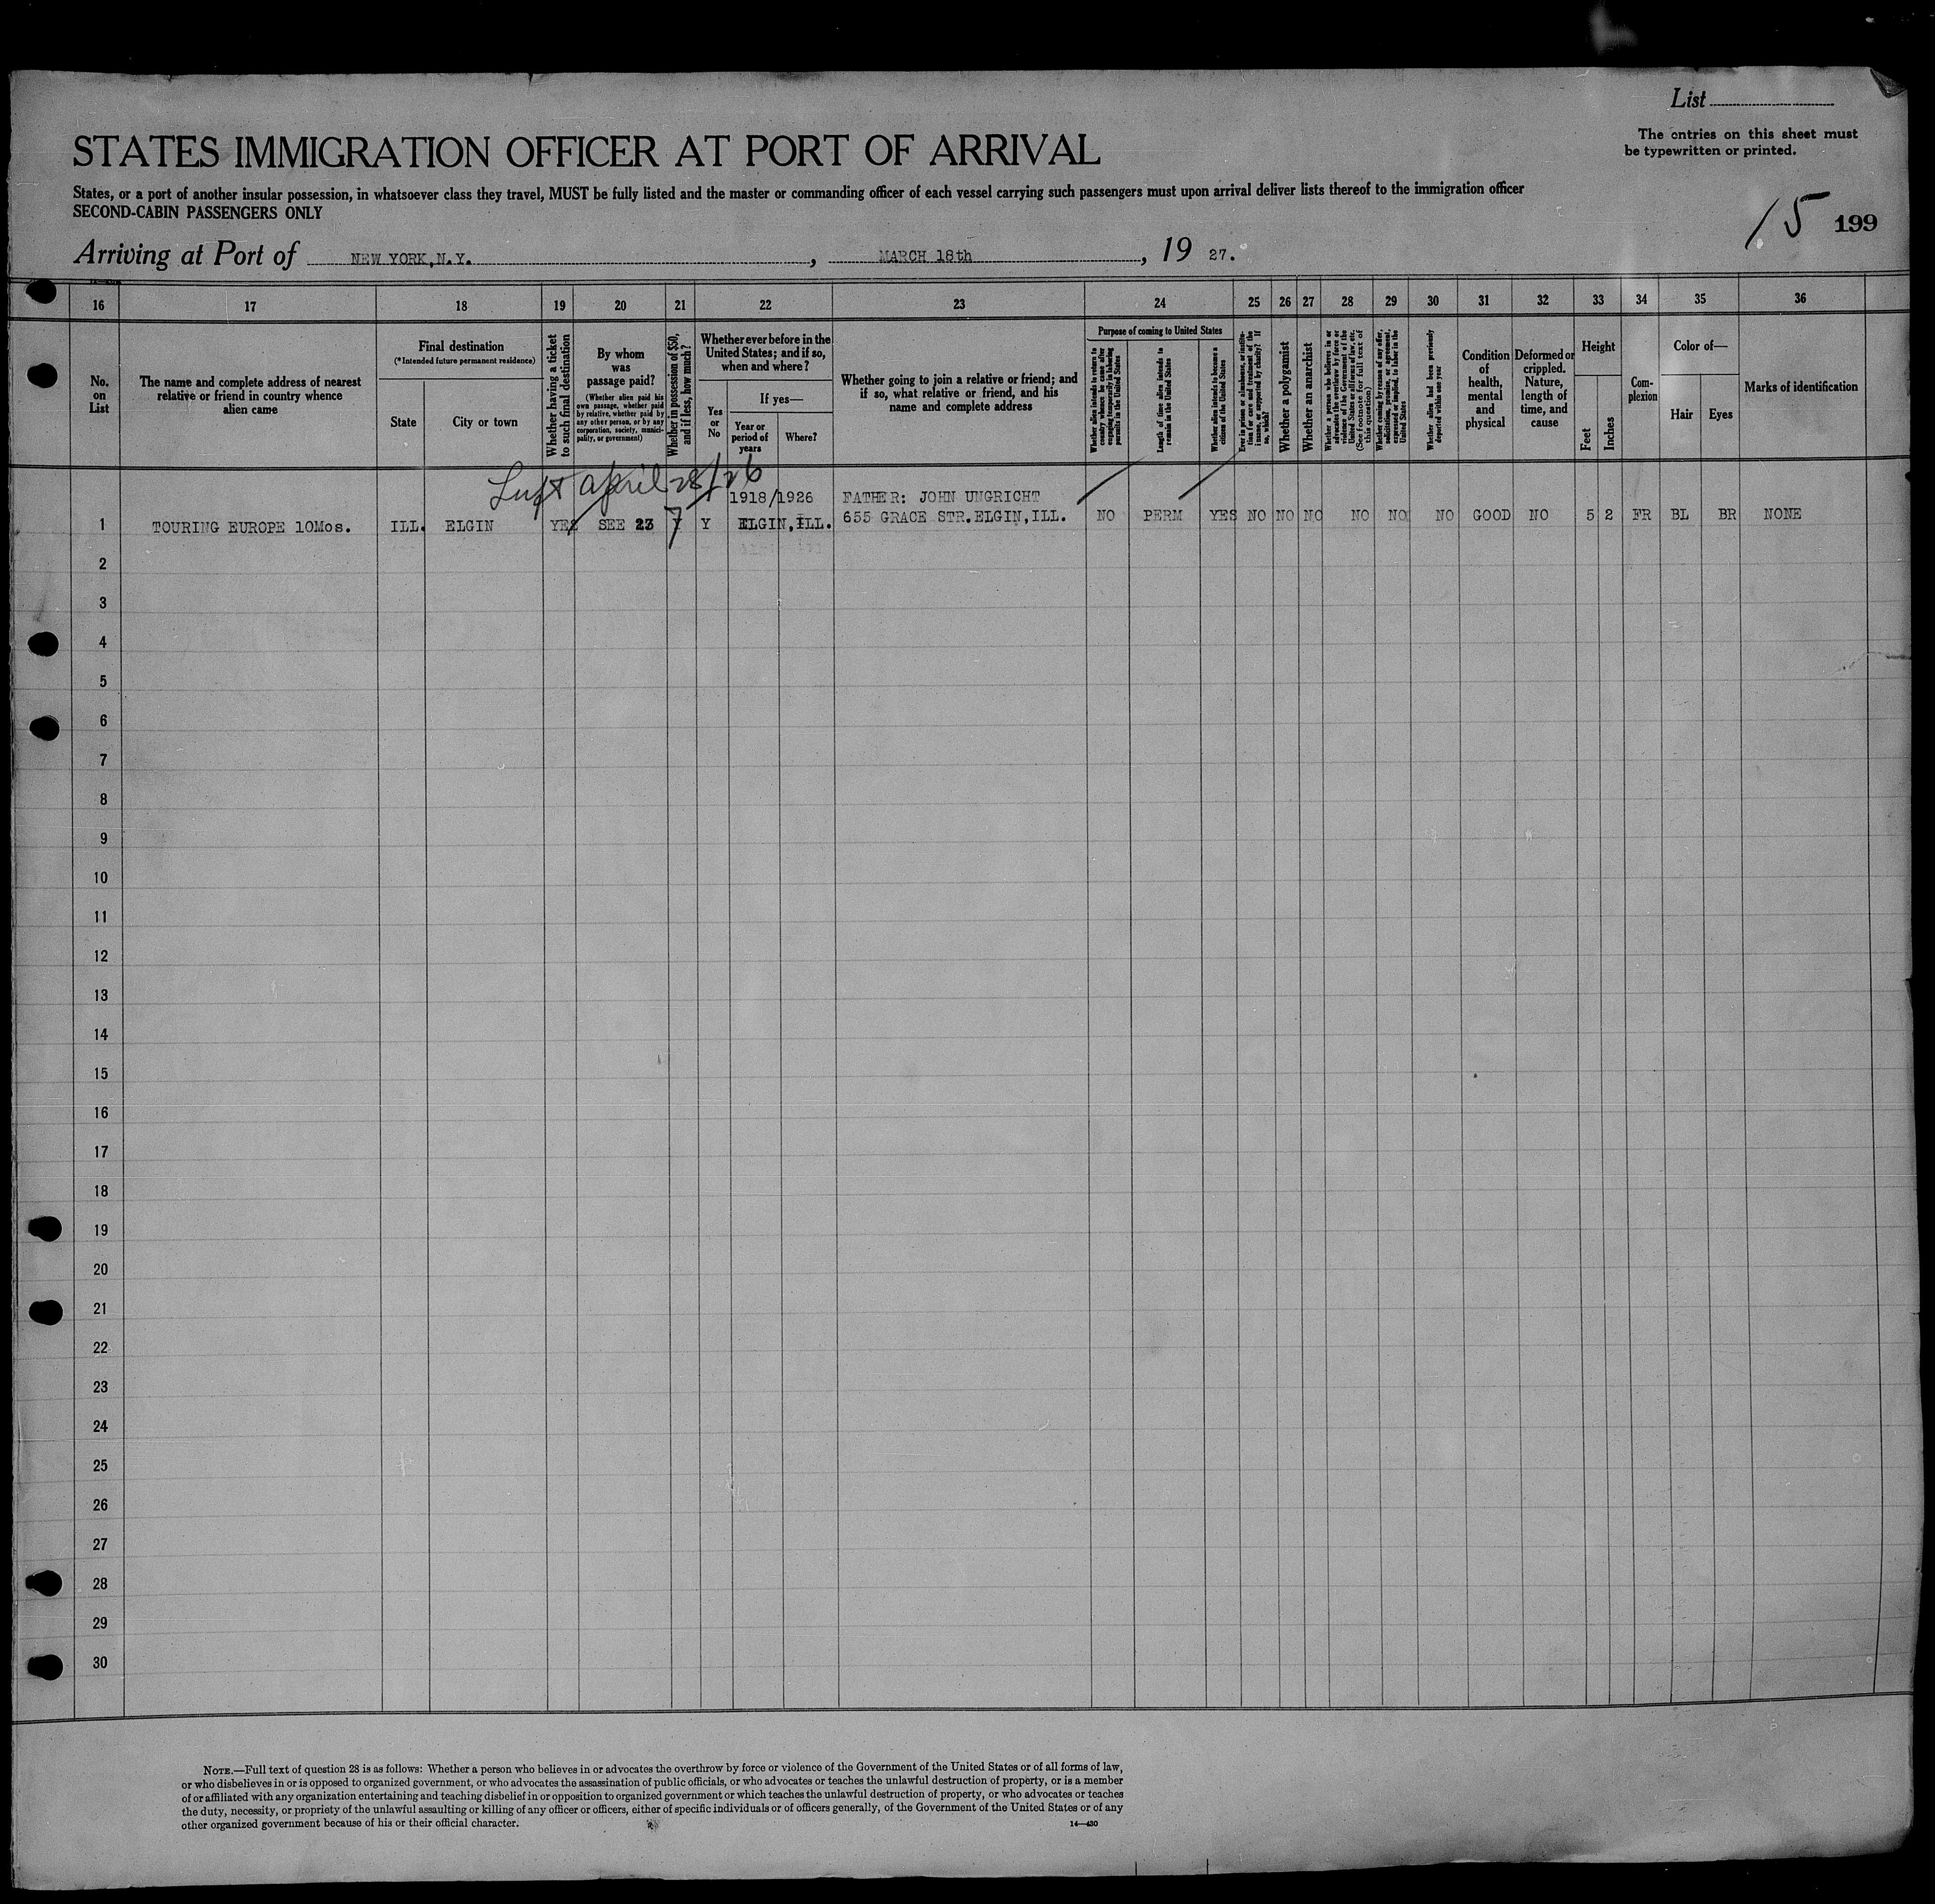 List
The entries on this sheet must
be typewritten or printed.
STATES IMMIGRATION OFFICER AT PORT OF ARRIVAL
States, or a port of another insular possession, in whatsoever class they travel, MUST be fully listed and the master or commanding officer of each vessel carrying such passengers must upon arrival deliver lists thereof to the immigration officer
SECOND-CABIN PASSENGERS ONLY
15 199
Arriving at Port of NEW YORK,N.Y. , MARCH 18th , 19 27.
16 17 18 19 20 21 22 23 24 25 26 27 28 29 30 31 32 33 34 35 36
No.
on
List
The name and complete address of nearest
relative or friend in country whence
alien came
Final destination
(*Intended future permanent residence)
State
City or town
Whether having a ticket
to such final destination
By whom
was
passage paid?
(Whether alien paid his
own passage, whether paid
by relative, whether paid by
any other person, or by any
corporation, society, munici-
pality, or government)
Whether in possession of $50,
and if less, how much?
Whether ever before in the
United States; and if so,
when and where?
Yes
or
No
If yes—
Year or
period of
years
Where?
Whether going to join a relative or friend; and
if so, what relative or friend, and his
name and complete address
Purpose of coming to United States
Whether alien intends to return to
country whence he came after
engaging temporarily in laboring
pursuits in the United States
Length of time alien intends to
remain in the United States
Whether alien intends to become a
citizen of the United States
Ever in prison or almshouse, or institu-
tion for care and treatment of the
insane, or supported by charity? If
so, which?
Whether a polygamist
Whether an anarchist
Whether a person who believes in or
advocates the overthrow by force or
violence of the Government of the
United States or all forms of law, etc.
(See footnote for full text of
this question)
Whether coming by reason of any offer,
solicitation, promise, or agreement,
expressed or implied, to labor in the
United States
Whether alien had been previously
deported within one year
Condition
of
health,
mental
and
physical
Deformed or
crippled.
Nature,
length of
time, and
cause
Height
Feet
Inches
Com-
plexion
Color of—
Hair
Eyes
Marks of identification
Left April 28/26
1918/1926 FATHER: JOHN UNGRICHT
1 TOURING EUROPE 10Mos. ILL. ELGIN YES SEE 23 Y Y ELGIN,ILL. 655 GRACE STR.ELGIN,ILL. NO PERM YES NO NO NO NO NO NO GOOD NO 5 2 FR BL BR NONE
2
3
4
5
6
7
8
9
10
11
12
13
14
15
16
17
18
19
20
21
22
23
24
25
26
27
28
29
30
NOTE.—Full text of question 28 is as follows: Whether a person who believes in or advocates the overthrow by force or violence of the Government of the United States or of all forms of law,
or who disbelieves in or is opposed to organized government, or who advocates the assassination of public officials, or who advocates or teaches the unlawful destruction of property, or is a member
of or affiliated with any organization entertaining and teaching disbelief in or opposition to organized government or which teaches the unlawful destruction of property, or who advocates or teaches
the duty, necessity, or propriety of the unlawful assaulting or killing of any officer or officers, either of specific individuals or of officers generally, of the Government of the United States or of any
other organized government because of his or their official character.
14—430